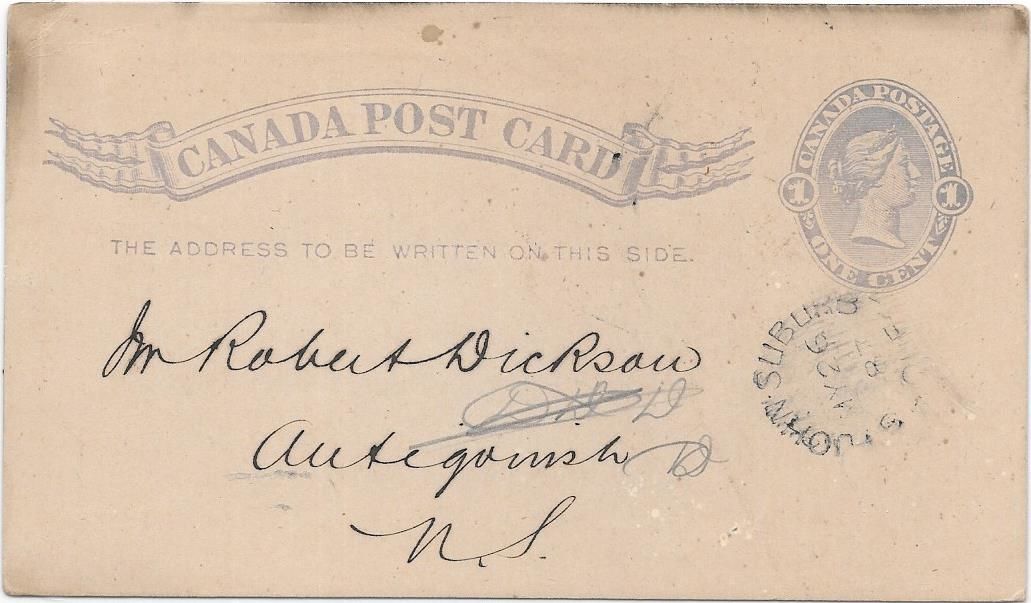 CANADA POST CARD
CANADA POSTAGE
1 1
ONE CENT
THE ADDRESS TO BE WRITTEN ON THIS SIDE.
Mr Robert Dickson
Antigonish
N.S.
ST JOHN. SUBURB
MY 26